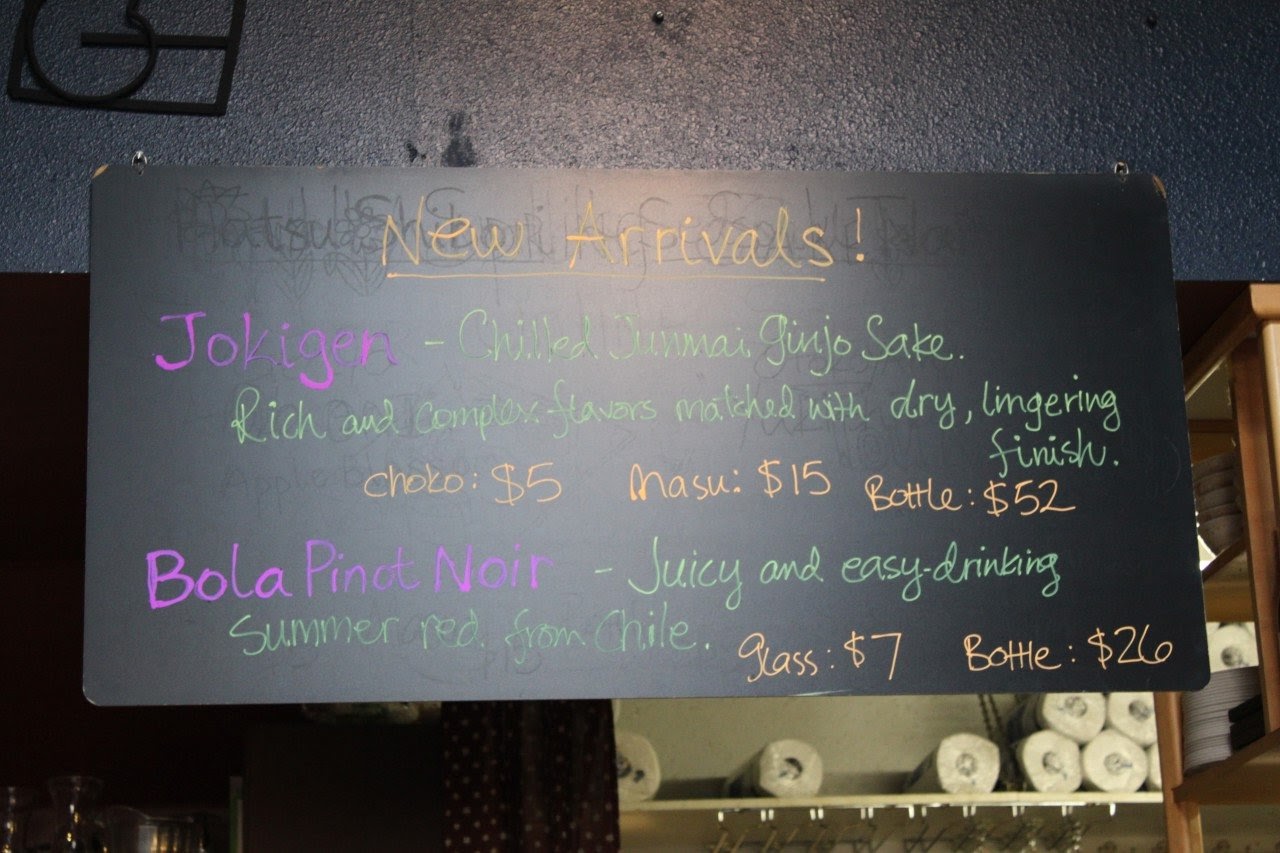 New Arrivals!
Jokigen - Chilled Junmai Ginjo Sake.
Rich and complex flavors matched with dry, lingering
finish.
choko: $5 Masu: $15 Bottle: $52
Bola Pinot Noir - Juicy and easy-drinking
Summer red from Chile.
glass: $7 Bottle: $26